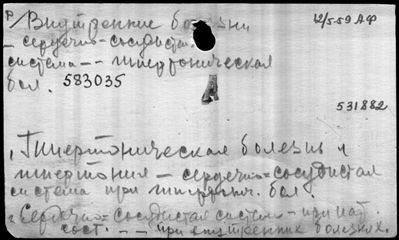 Р/Внутренние болезни
12/5-59 АФ
– сердечно-сосудист.
система – – гипертоническая
бол. 583035
531882
1, Гипертоническая болезнь и
гипертония – сердечно=сосудистая
система при гипертонич. бол.
2 Сердечно=сосудистая система – при пат.
сост. – – при внутренних болезнях.